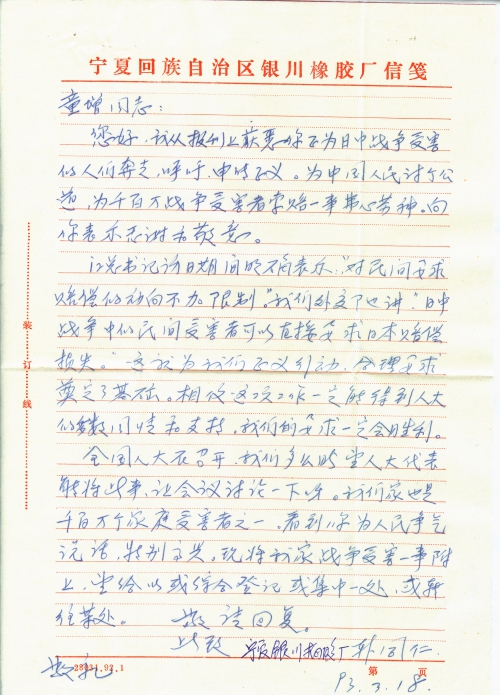 宁夏回族自治区银川橡胶厂信笺
童增同志：
您好，我从报刊上获悉你正为日中战争受害
的人们奔走，呼吁，申张正义。为中国人民讨个公
道，为千百万战争受害者索赔一事费心劳神。向
你表示感谢和敬意。
江总书记访日期间明确表示，"对民间要求
赔偿的动向不加限制"。我们外交了也讲"日中
战争中的民间受害者可以直接要求日本赔偿
损失。"这就为我们正义行动，合理要求
奠定了基础。相信这项工作一定能得到人大
的多数同情和支持，我们的要求一定会胜利。
全国人大在召开，我们多么盼望人大代表
能将此事，让会议讨论一下呀。我们家也是
千百万个家庭受害者之一，看到你为人民争气
说话，特别高兴。现将我家战争受害一事附
上，望给以或综合登记或集中一处，或转
往某处。 敬请回复。
此致
宁夏银川橡胶厂 韩同仁
敬礼
93.3.18
装
订
线
28031.92.1
第 页